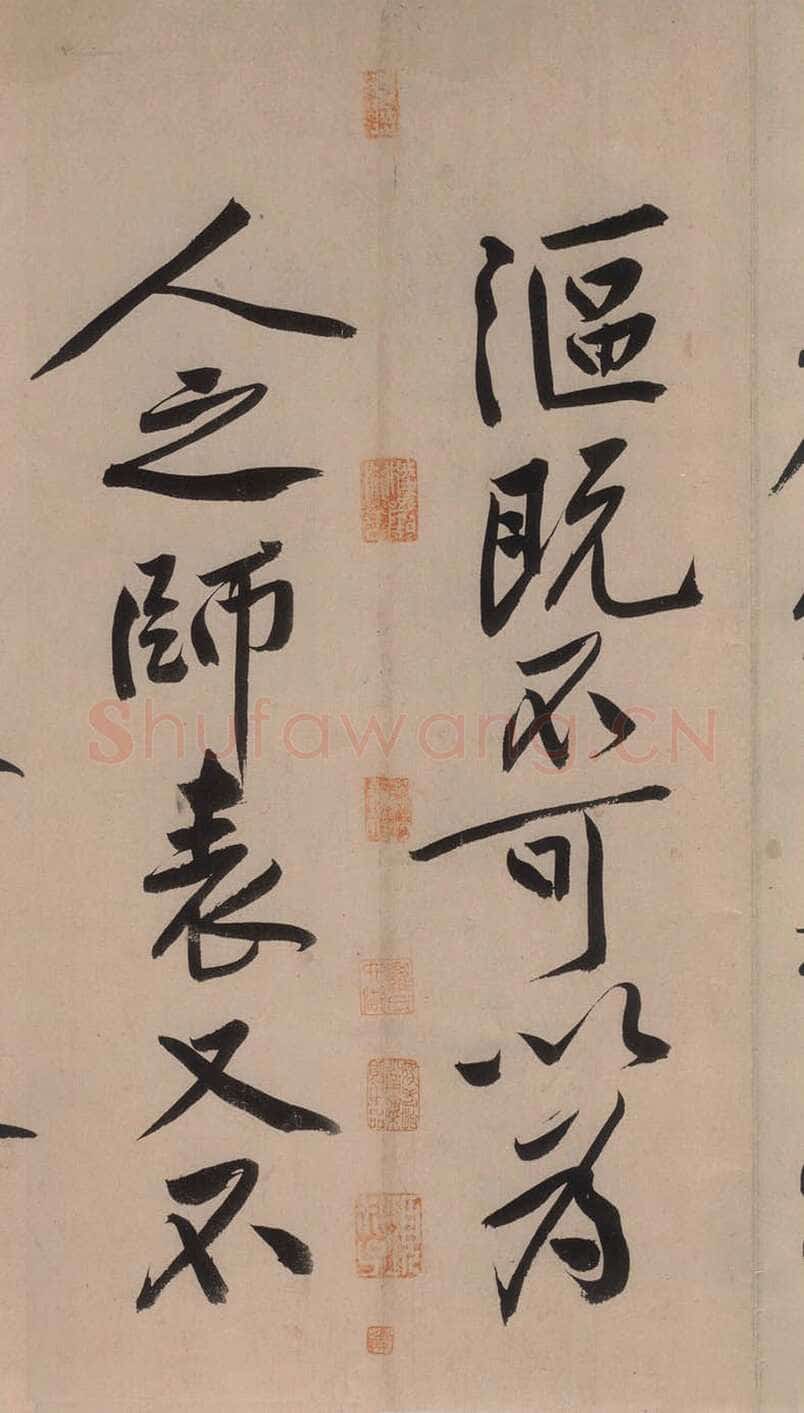 漚既不可以为
人之師表又不
Shufawang.CN